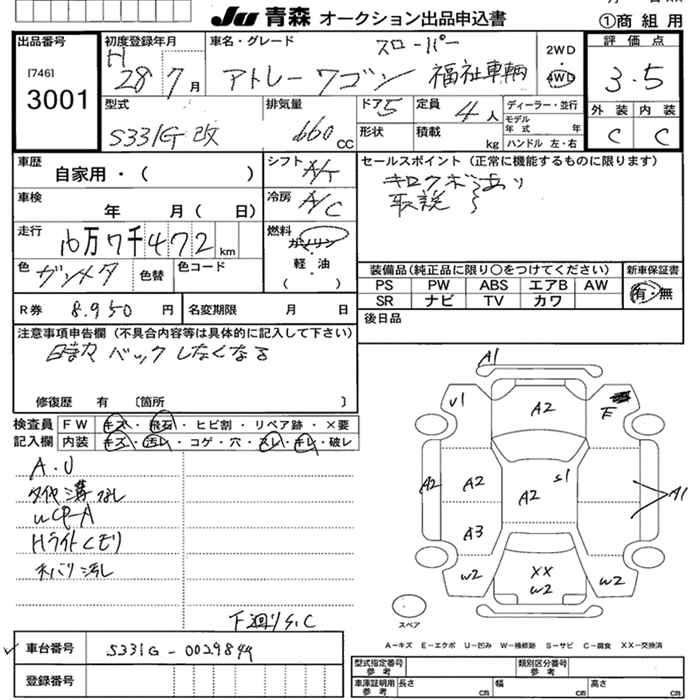 JU 青森 オークション出品申込書
①商 組 用
出品番号
[746]
3001
初度登録年月
H 28年 7月
車名・グレード
スローパー
アトレーワゴン 福祉車輌
2WD
・
4WD
評価点
3.5
外装 内装
C C
型式
S331G 改
排気量
660 CC
ドア 5
定員 4人
形状
積載 kg
ディーラー・並行
モデル年式 年
ハンドル 左・右
車歴
自家用・( )
シフト A/T
セールスポイント(正常に機能するものに限ります)
キロクボあり
取説 〃
車検
年 月( 日)
冷房 A/C
走行
16万7千472km
燃料
ガソリン
・
軽 油
( )
色 ガンメタ
色替
色コード
装備品(純正品に限り○をつけてください)
新車保証書
PS PW ABS エアB AW
SR ナビ TV カワ
有・無
R券 8,950円
名変期限 月 日
後日品
注意事項申告欄(不具合内容等は具体的に記入して下さい)
時々 バック しなくなる
修復歴 有 〔箇所 〕
検査員記入欄
FW キズ・飛石・ヒビ割・リペア跡・×要
内装 キズ・汚レ・コゲ・穴・スレ・キレ・破レ
A.U
タイヤ溝なし
Hライトくもり
下廻りS.C
A1
V1
A2
E
A2
A2
A2
S1
A1
A3
W2
XX
W2
W2
スペア
A−キズ E−エクボ U−凹み W−補修跡 S−サビ C−腐食 XX−交換済
車台番号 S331G-0029844
登録番号
型式指定番号 参考
類別区分番号 参考
車庫証明用 参考
長さ cm
幅 cm
高さ cm